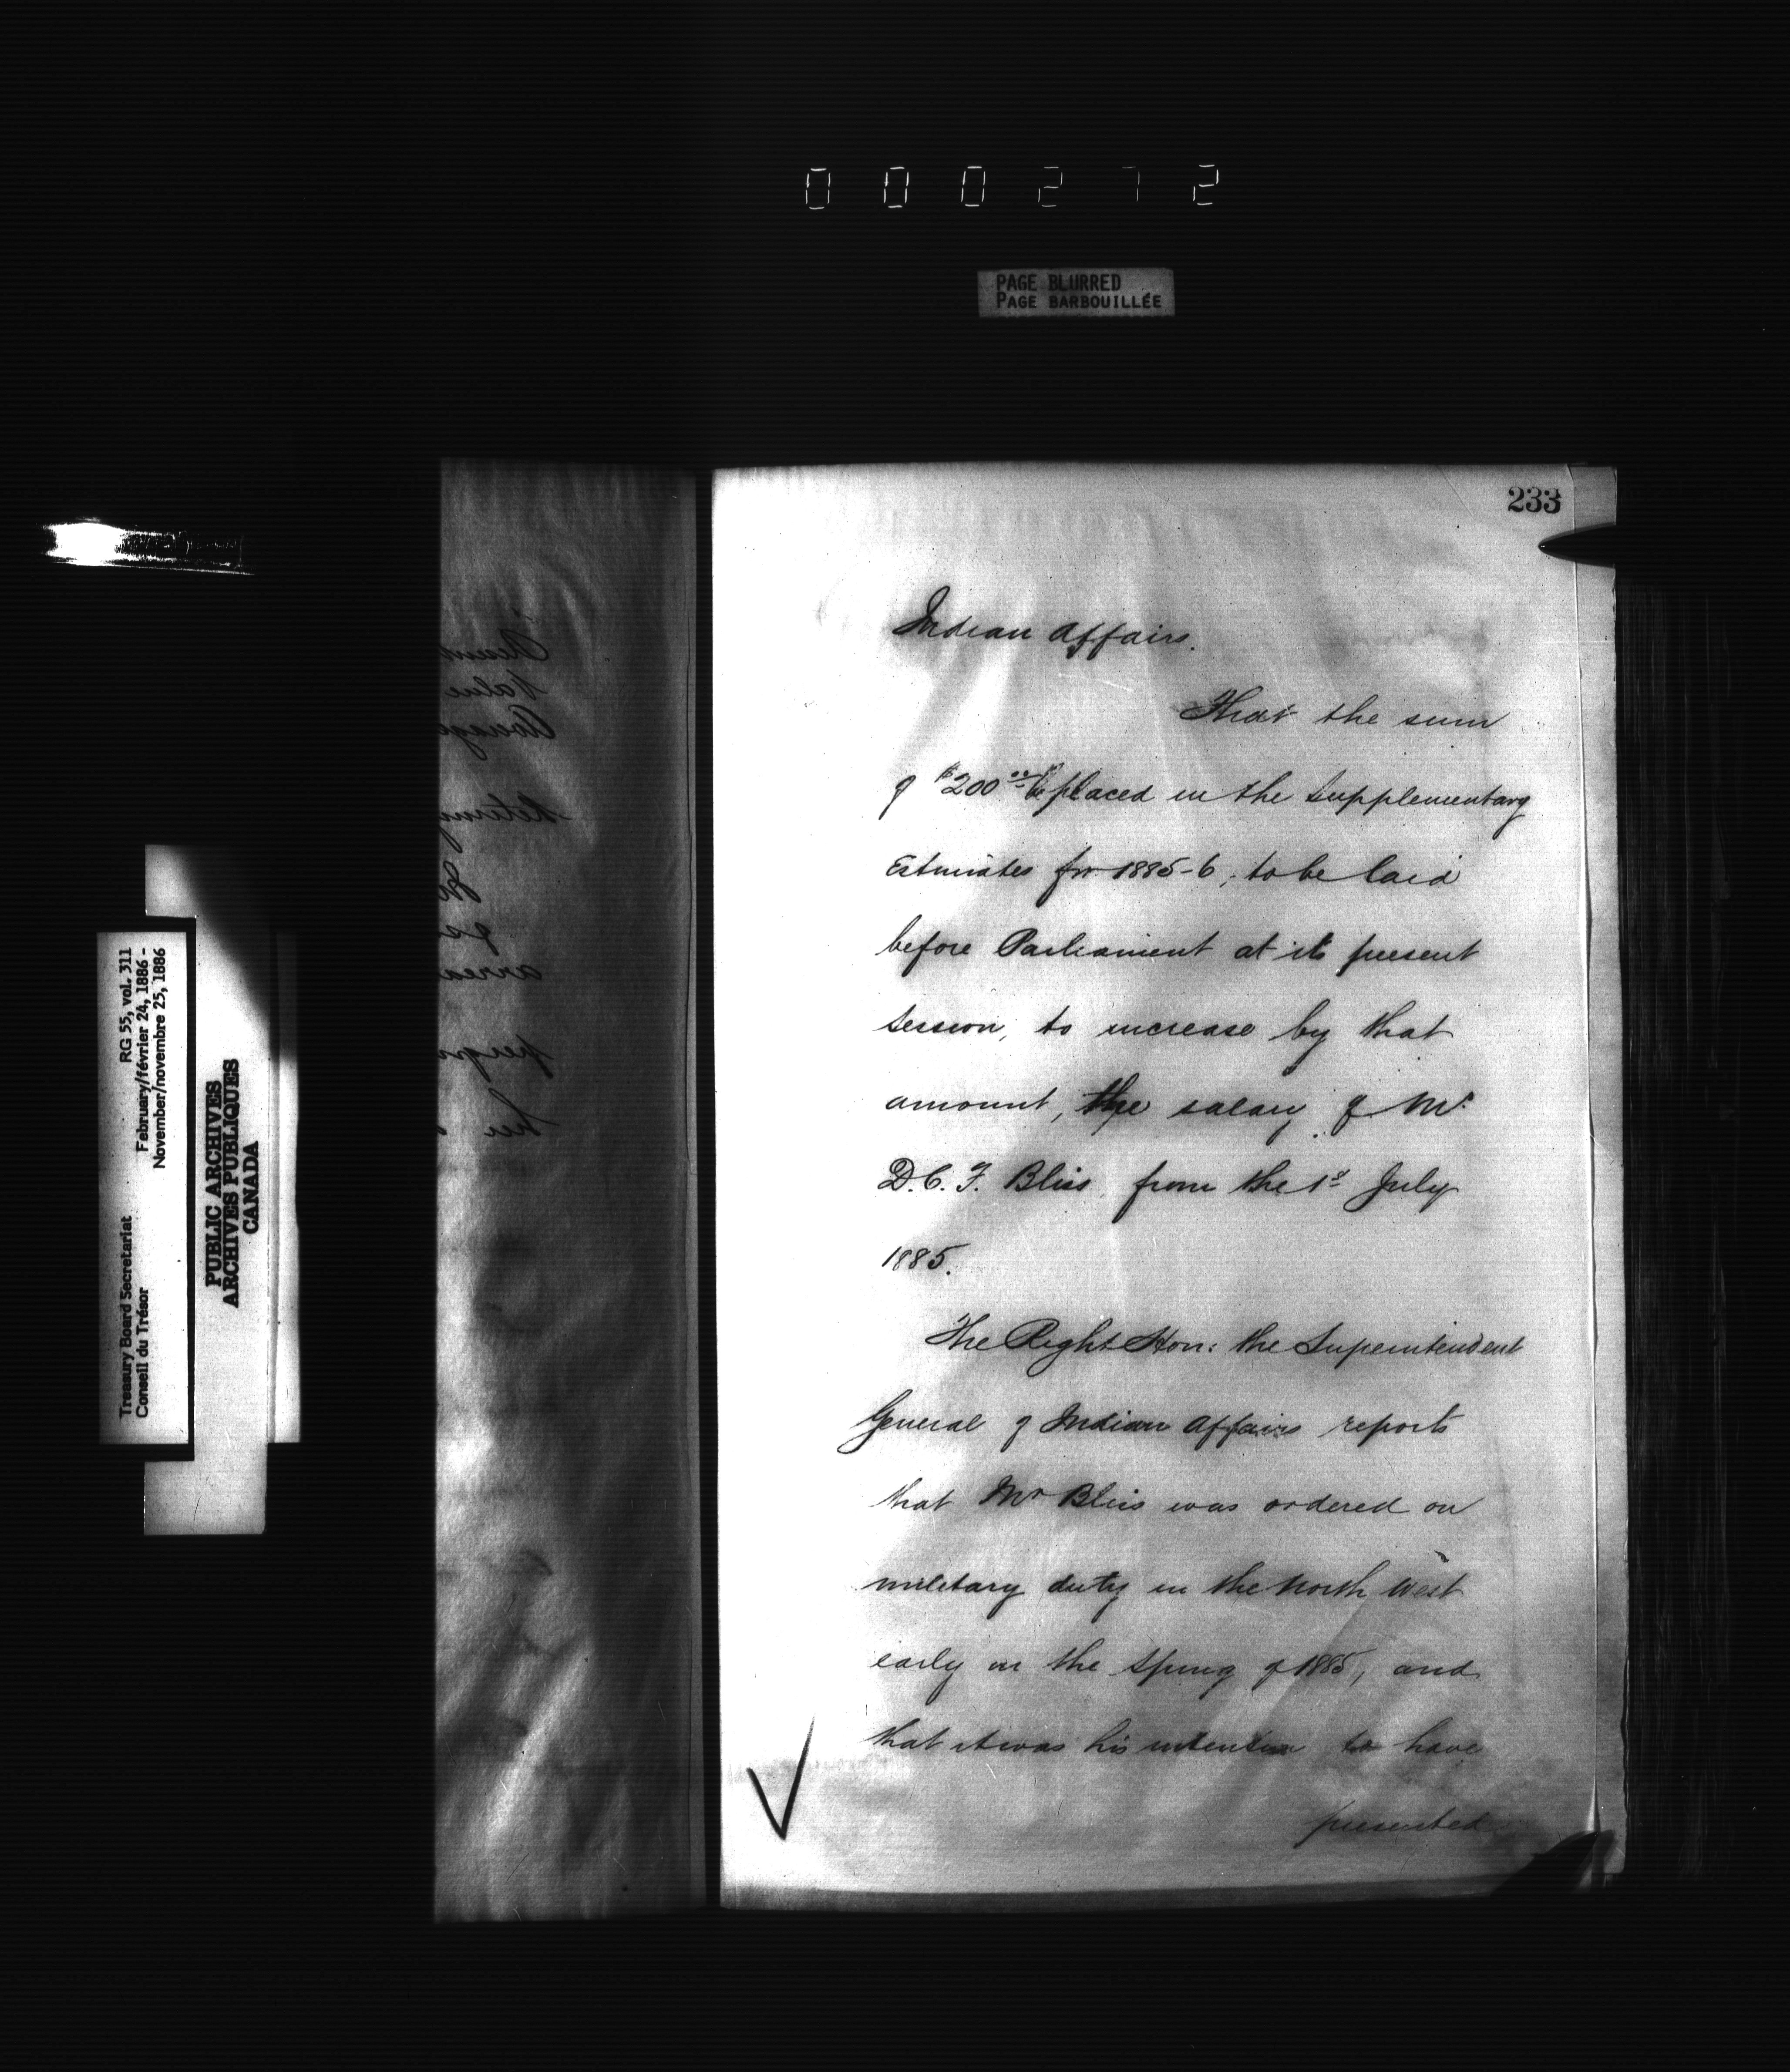 000272
PAGE BLURRED
PAGE BARBOUILLÉE
233
Indian Affairs.
That the sum
of $200.00 be placed in the Supplementary
Estimates for 1885-6, to be laid
before Parliament at its present
session, to increase by that
amount, the salary of Mr.
D. C. F. Bliss, from the 1st July
1885.
The Right Hon: the Superintendent
General of Indian Affairs reports
that Mr Bliss was ordered on
military duty in the North West
early in the Spring of 1885, and
that it was his intention to have
presented
Treasury Board Secretariat RG 55, vol. 311
Conseil du Trésor February/février 24, 1886 -
November/novembre 25, 1886
PUBLIC ARCHIVES
ARCHIVES PUBLIQUES
CANADA